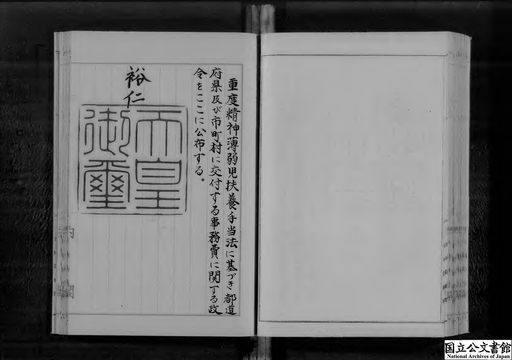 重度精神薄弱児扶養手当法に基づき都道
府県及び市町村に交付する事務費に関する政
令をここに公布する。
裕仁
天皇
御璽
国立公文書館
National Archives of Japan